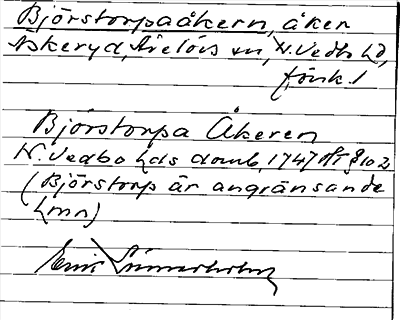 Björstorpaåkern, åker
Askeryd, Årelövs sn, N. Vedbo hd,
försk. /
Björstorpa Åkeren
N. Vedbo hds domb, 1747 § 102
(Björstorp är angränsande
hmn)